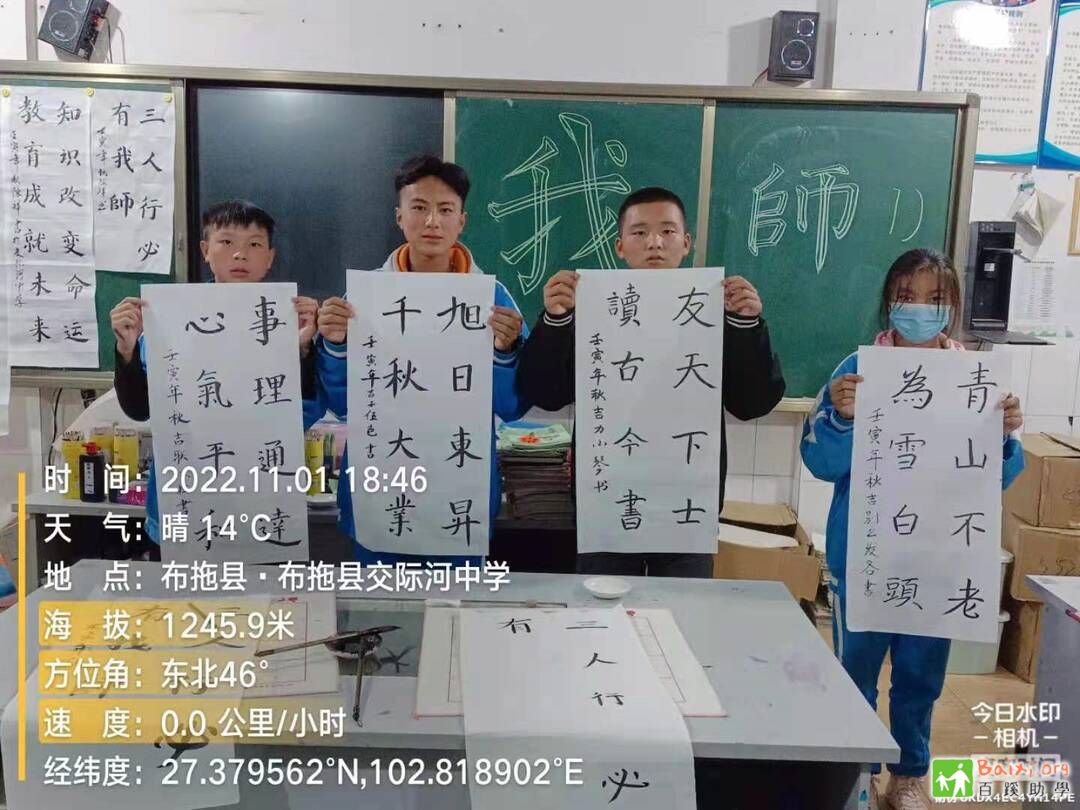 知识改变命运
教育成就未来
三人行必
有我師
我
師
事理通達
心氣平和
旭日東昇
千秋大業
友天下士
讀古今書
壬寅年秋吉力小琴书
青山不老
為雪白頭
三人行必
有
时 间：2022.11.01 18:46
天 气：晴 14°C
地 点：布拖县·布拖县交际河中学
海 拔：1245.9米
方位角：东北46°
速 度：0.0 公里/小时
经纬度：27.379562°N,102.818902°E
今日水印
-相机-
Baixi.org
百蹊助學